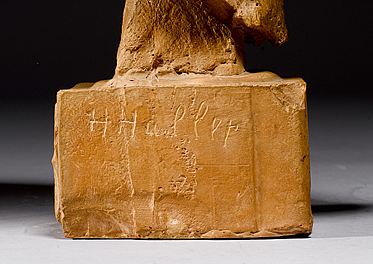 H Haller